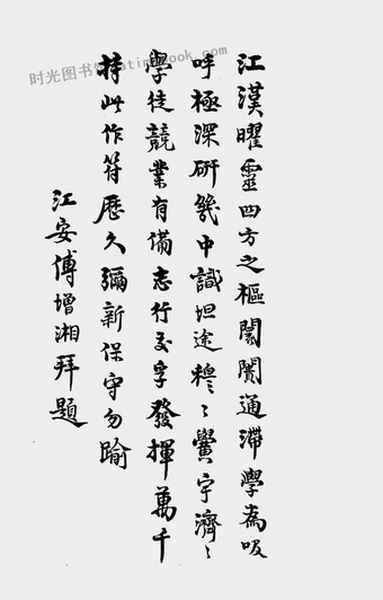 江漢曜靈四方之樞闤闠通滯學為吸
呼極深研幾中識坦途穆〻黌宇濟〻
學徒競業有備志行交孚發揮萬千
持此作符歷久彌新保守勿踰
江安傅增湘拜題
时光图书